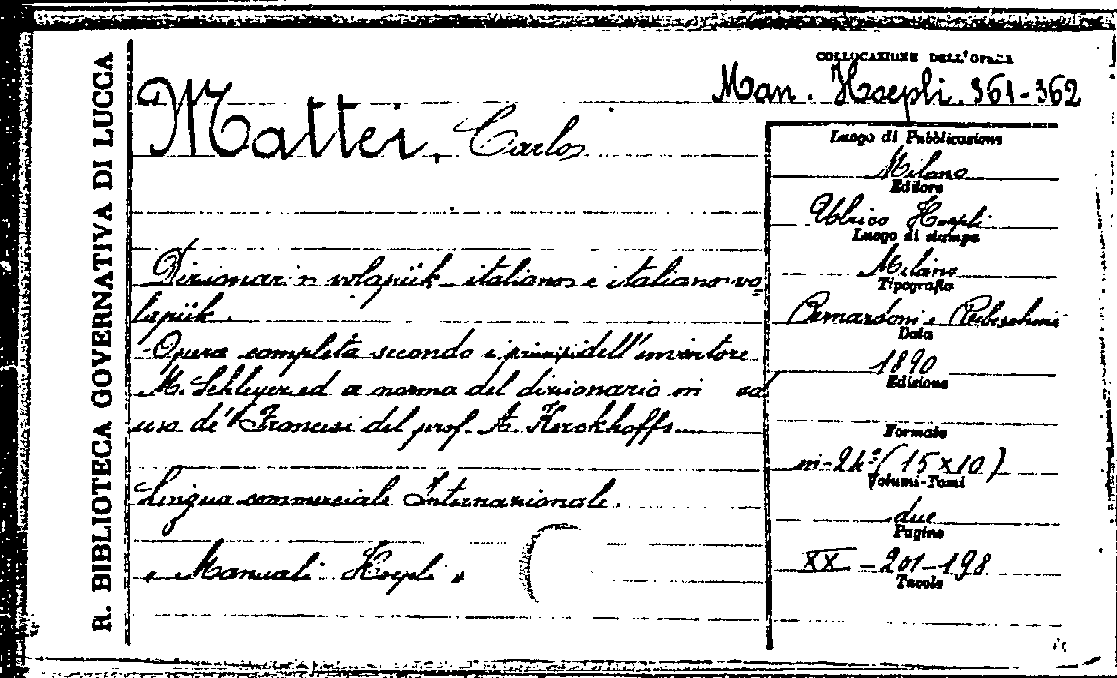 R. BIBLIOTECA GOVERNATIVA DI LUCCA
COLLOCAZIONE DELL'OPERA
Man. Hoepli. 361-362
Mattei, Carlo
Luogo di Pubblicazione
Milano
Editore
Ulrico Hoepli
Luogo di stampa
Milano
Tipografia
Bernardoni e Rebeschini
Data
1890
Edizione
Formato
in-24º (15x10)
Volumi-Tomi
due
Pagine
XX - 201-198
Tavole
Dizionario volapük-italiano e italiano-vo=
lapük.
Opera completa secondo i principi dell'inventore
M. Schleyer ed a norma del dizionario in ad
uso de' Francesi del prof. A. Kerckhoffs
Lingua commerciale Internazionale.
"Manuali Hoepli"